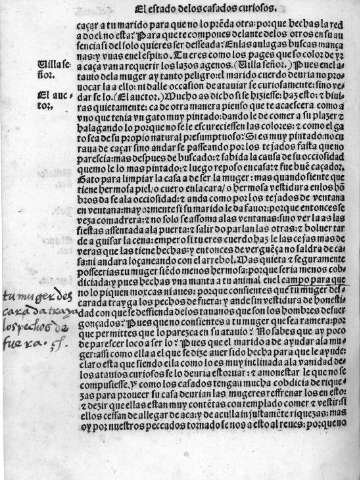 El estado de los casados curiosos.
caçar a tu marido para que no lo prẽda otra: porque hechas la red
a do el no esta? Para que te compones delante de los otros en su au-
sencia si del solo quieres ser desseada? En las aulagas buscas mança
nas: y uvas en el espino. Tu eres como los pages que so color de yr
a caça van a requerir los lazos agenos. (Villa señor.) Pues en el a-
Villa se-
ñor.
tauio dela muger ay tanto peligro: el marido cuerdo deuria no prouo
car la a ello: ni dalle occasion de atauiar se curiosamente: sino ve-
dar se lo. (El auctor.) Mucho as dicho si se hiziesse: haz esto: z biui-
El auc-
tor.
ras quietamente: ca de otra manera pienso que te acaescera como a
vno que tenia vn gato muy pintado: dando le de comer a su plazer z
halagando lo porque no se le escureciessen las colores: z como el ga-
to sea de su propio natural presumptuoso: Si es muy pintado: no cu
raua de caçar sino andar se passeando por los tejados fasta que no
parescia: mas despues de buscado: z sabida la causa de su occiosidad
quemo le lo mas pintado: z luego reposo en casa: z fue buẽ caçador.
Gato para limpiar la casa a de ser la muger: mas quando siente que
tiene hermosa piel/o cuero en la cara/o hermosa vestidura en los hõ-
bros da se ala occiosidad: z anda como por los tejados de ventana
en ventana: mayormente si su marido le da fauor: porque entonces se
gasa comadrera: z no solo se assoma alas ventanas: sino ver la as las
fiestas assentada ala puerta: z salir do parlan las otras: z boluer tar
de a guisar la cena: empero si tu eres cuerdo haz le las cejas mas de
veras que las tiene hechas: y entonces de verguẽça no saldra de ca-
sa: ni andara loçaneando con el arrebol. Mas quieta z seguramente
posseerias tu muger siẽdo menos hermosa: porque seria menos cob-
diciada: y pues hechas vna manta a tu animal en el campo para que
no lo piquen moxcas nianes: porque consientes que tu muger des-
carada trayga los pechos de fuera: y ande sin vestidura de honesti-
dad con que se deffienda delos tauanos que son los hombres desuer
gonçados? Pues que no consientes a tu muger que sea ramera: por
que permittes que lo parezca en su atauio? No sabes que ay poco
tu muger des
carada trayga
los pechos de
fuera. ff.
de parescer loco a ser lo? Pues que el marido es de ayudar ala mu-
ger: assi como ella a el que se dize auer sido hecha para que le ayude:
claro esta que siendo ella como lo es muy inclinada ala vanidad de
los atauios curiosos se lo deuria estoruar: z amonestar le que no se
compusiesse, y como los casados tengan mucha cobdicia de rique-
zas para proueer su casa deurian las mugeres reffrenar los en esto:
z dezir que ellas estan muy contẽtas con templado comer z vestir: si
ellos cessan de allegar de aca: y de aculla injustamẽte riquezas: mas
oy por nuestros peccados tornado se nos a esto al reues: porque no